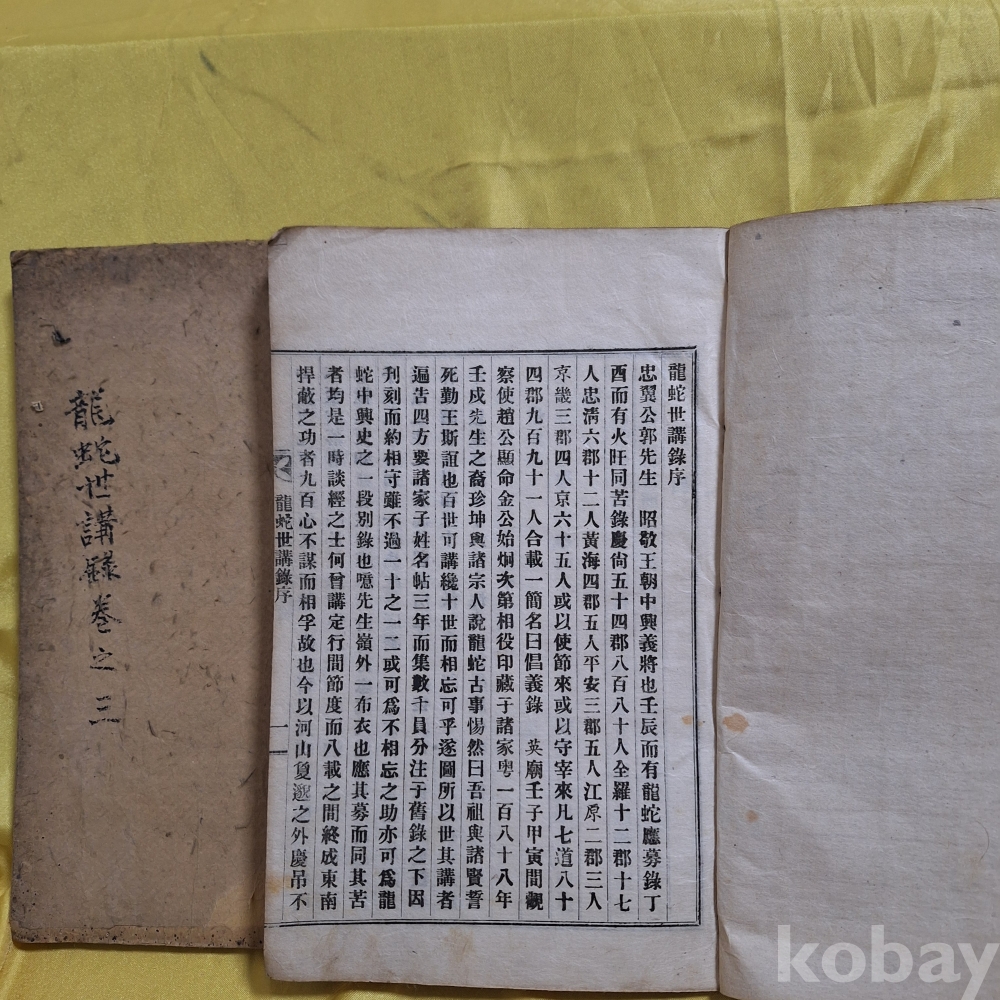 龍蛇世講錄序
忠翼公郭先生 昭敬王朝中興義將也壬辰而有龍蛇應募錄丁
酉而有火旺同苦錄慶尙五十四郡八百八十人全羅十二郡十七
人忠淸六郡十二人黃海四郡五人平安三郡五人江原二郡三人
京畿三郡四人京六十五人或以使節來或以守宰來凡七道八十
四郡九百九十一人合載一簡名曰倡義錄 英廟壬子甲寅間觀
察使趙公顯命金公始烱次第相役印藏于諸家粤一百八十八年
壬戌先生之裔珍坤與諸宗人說龍蛇古事惕然曰吾祖與諸賢誓
死勤王斯誼也百世可講纔十世而相忘可乎遂圖所以世其講者
遍告四方要諸家子姓名帖三年而集數千員分注于舊錄之下因
刋刻而約相守雖不過一十之一二或可爲不相忘之助亦可爲龍
蛇中興史之一段別錄也噫先生嶺外一布衣也應其募而同其苦
者均是一時談經之士何曾講定行間節度而八載之間終成東南
捍蔽之功者九百心不謀而相孚故也今以河山敻邈之外慶吊不
龍蛇世講錄序
一
龍蛇世講錄卷之三
kobay